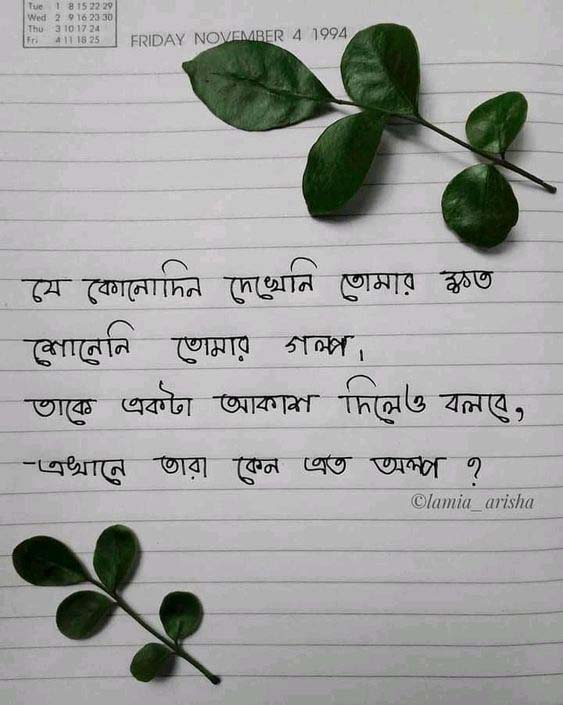 Tue 1 8 15 22 29
Wed 2 9 16 23 30
Thu 3 10 17 24
Fri 4 11 18 25
FRIDAY NOVEMBER 4 1994
যে কোনোদিন দেখেনি তোমার ক্ষত
শোনেনি তোমার গল্প,
তাকে একটা আকাশ দিলেও বলবে,
-এখানে তারা কেন এত অল্প ?
©lamia_arisha